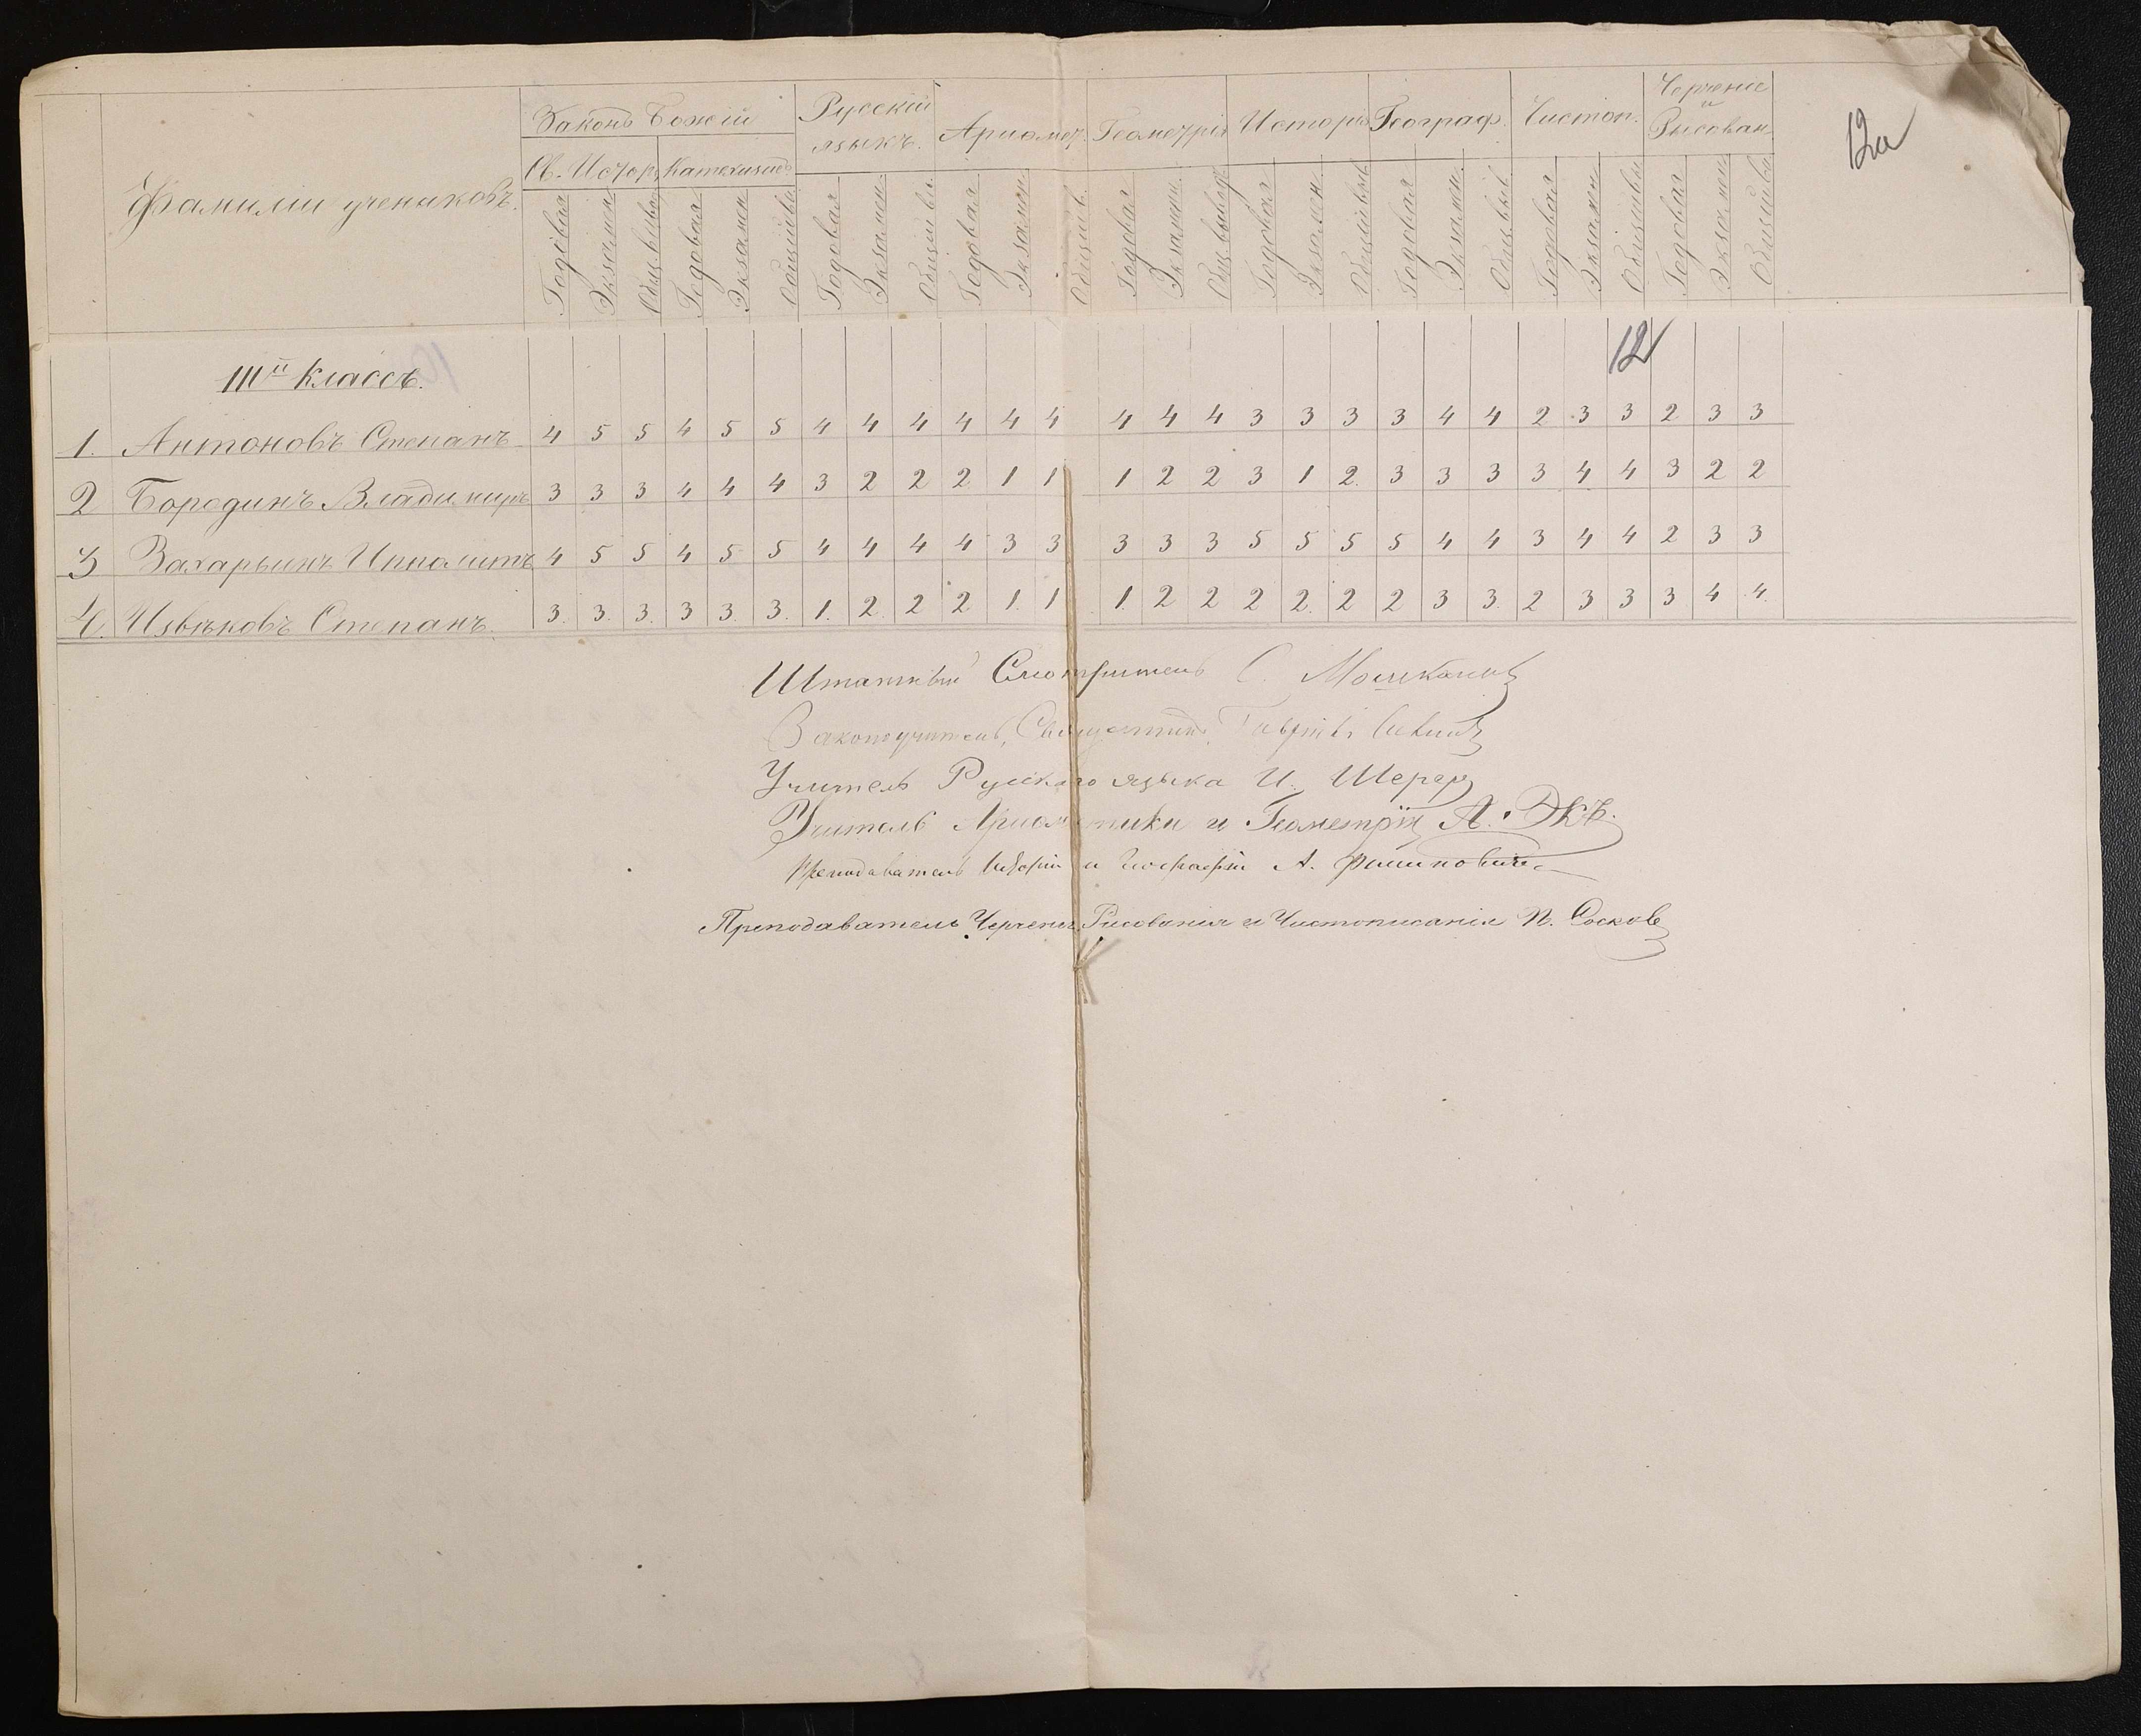 12а
Фамиліи учениковъ.
Законъ Божій
Русскій языкъ.
Ариѳмет.
Геометрія
Исторія
Географ.
Чистоп.
Черченіе и Рисован.
Св. Истор.
Катехизисъ
Годовая Экзамен Общ. выво Годовая Экзамен Общій выв Годовая Экзамен. Общій вы. Годовая Экзамен Общій в. Годовая Экзамен. Общ. вывод Годовая Экзамен Общій выв Годовая Экзамен. Общ. выв. Годовая Экзамен Общій вы Годовая Экзамен Общій вы
12
IIIй Классъ.
1. Антоновъ Степанъ 4 5 5 4 5 5 4 4 4 4 4 4 4 4 4 3 3 3 3 4 4 2 3 3 2 3 3
2 Бородинъ Владимиръ 3 3 3 4 4 4 3 2 2 2 1 1 1 2 2 3 1 2 3 3 3 3 4 4 3 2 2
3 Захарьинъ Ипполитъ 4 5 5 4 5 5 4 4 4 4 3 3 3 3 3 5 5 5 5 4 4 3 4 4 2 3 3
4. Извѣковъ Степанъ. 3. 3. 3. 3 3. 3. 1. 2. 2 2 1. 1 1. 2 2 2 2. 2 2 3 3. 2 3 3 3 4 4.
Штатный Смотритель С. Мошкановъ
Законоучитель, Священникъ
Учитель Русскаго языка И. Шерер
Учитель Ариѳметики и Геометріи А. Экъ.
Преподаватель Исторіи и Географіи А.
Преподаватель Черченія, Рисованія и Чистописанія П. Соскова